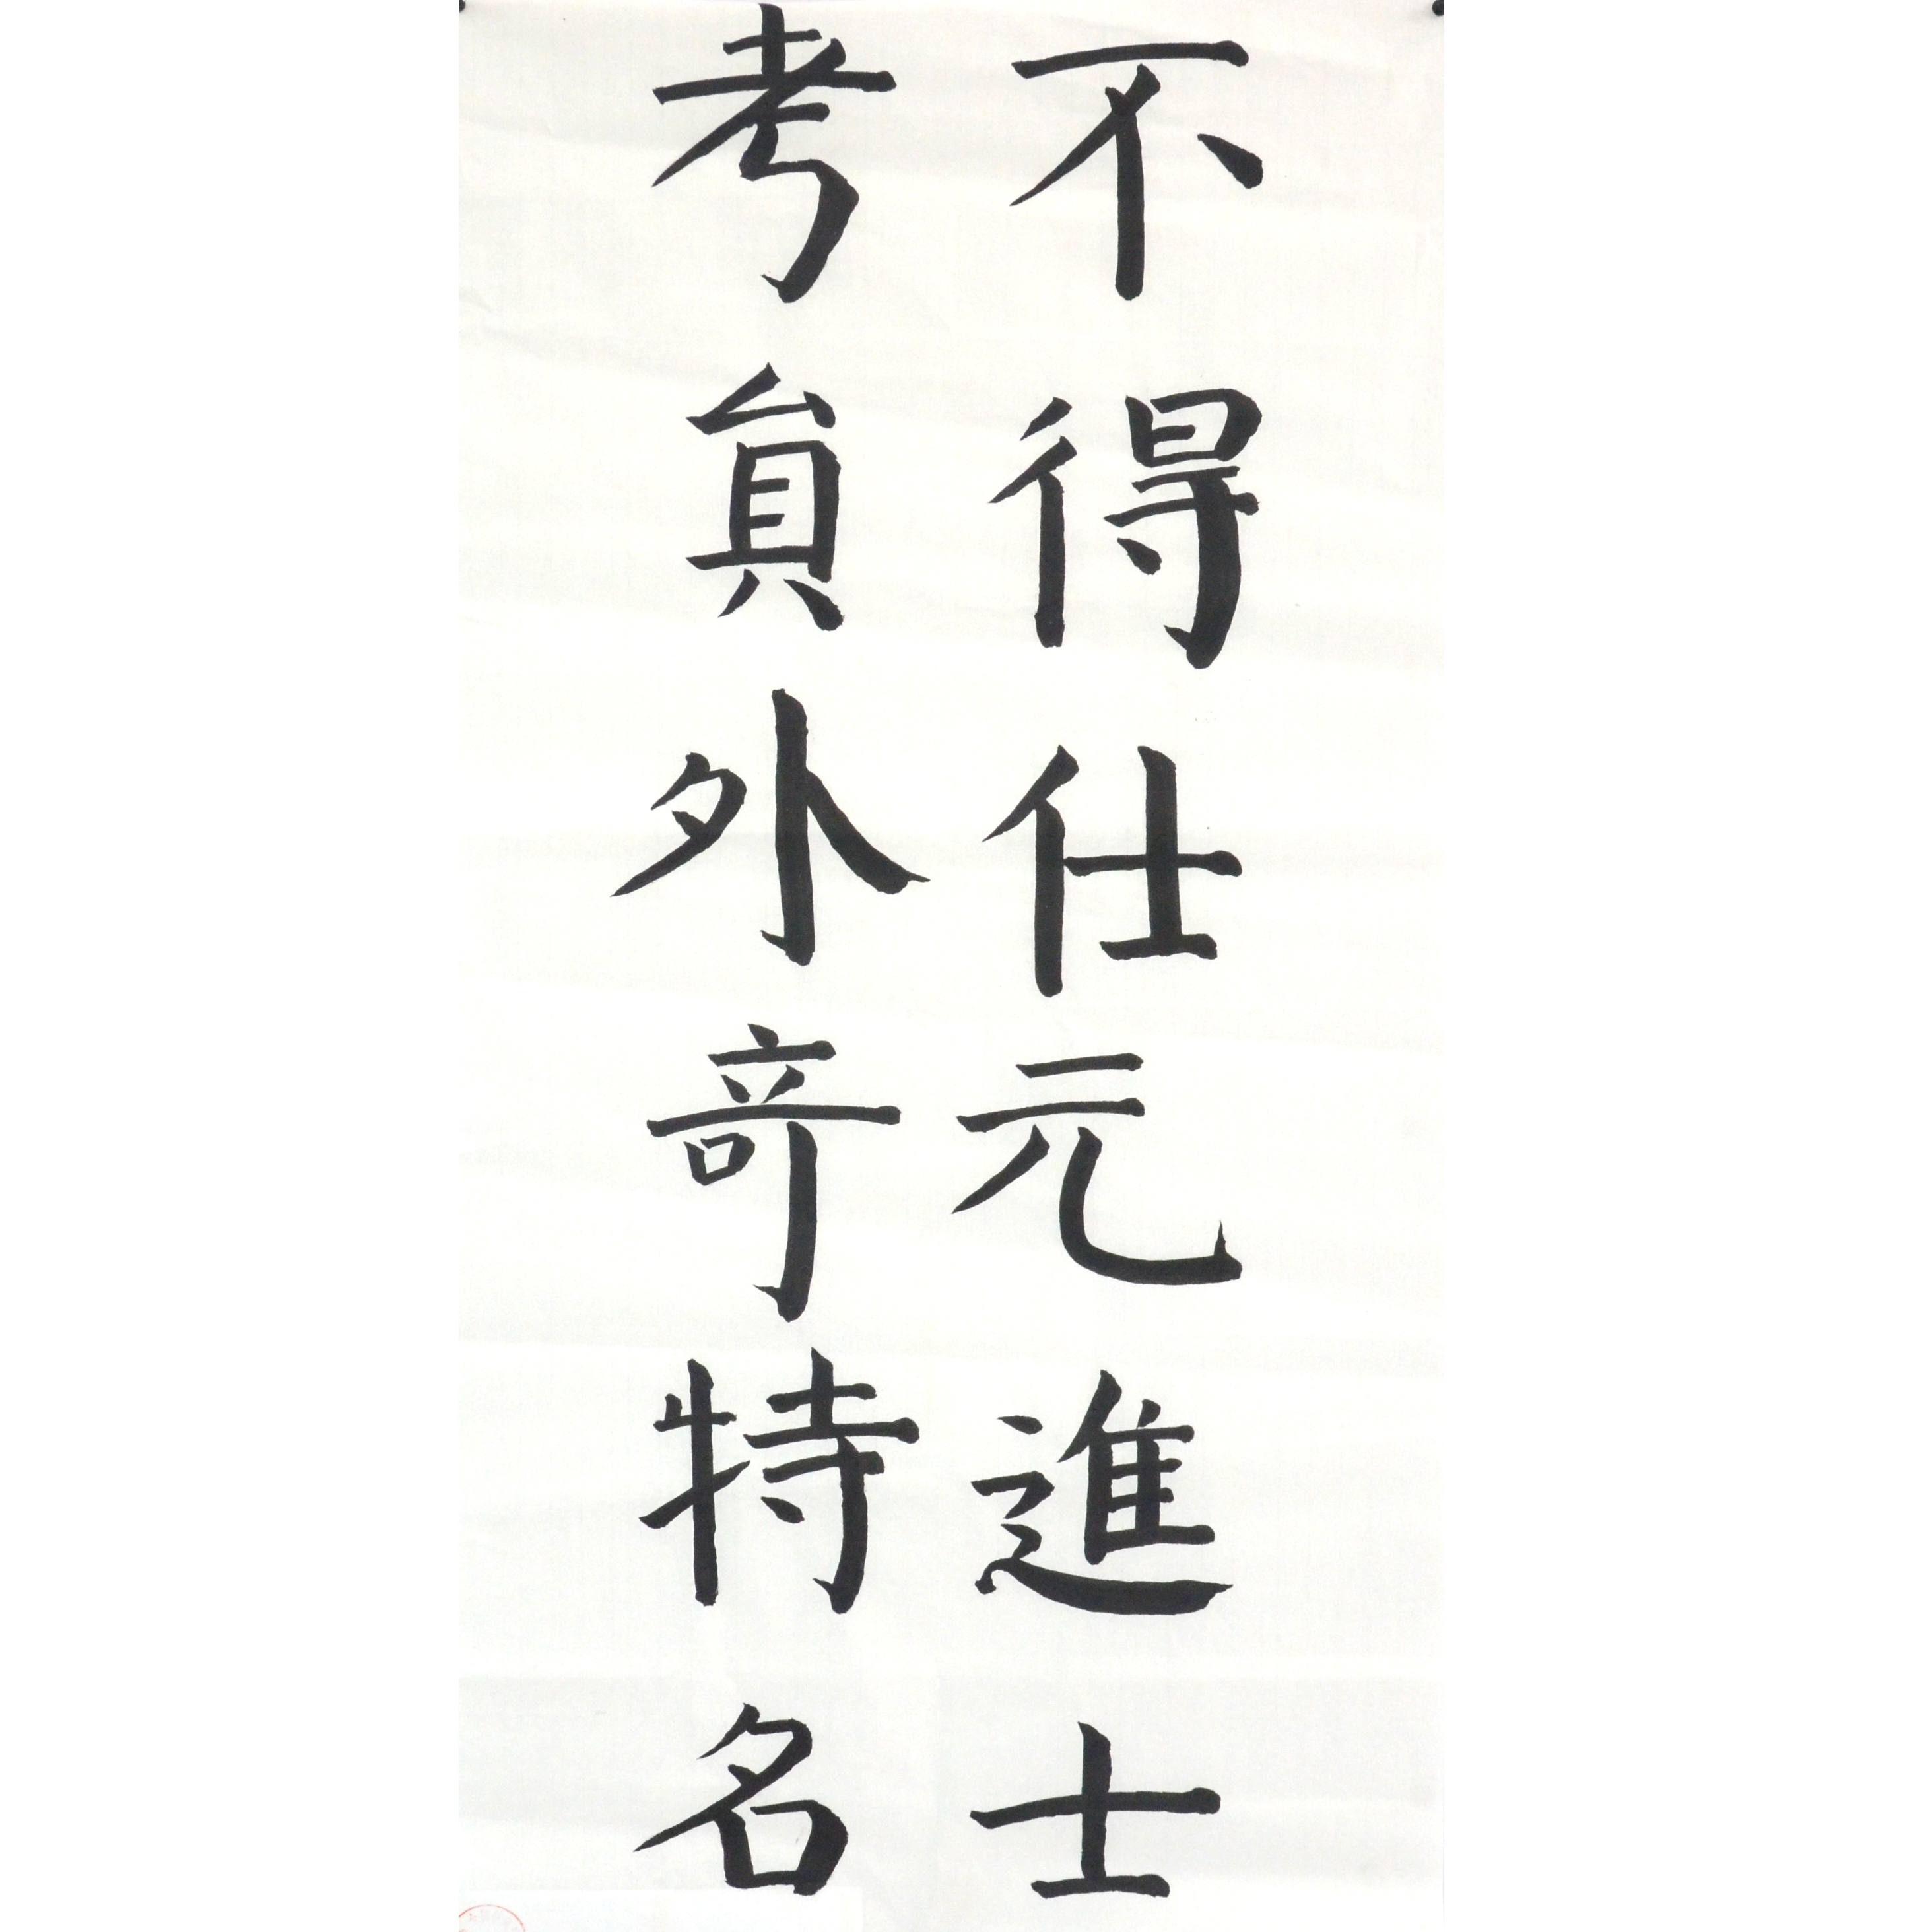 不得仕元進士
考員外竒特名